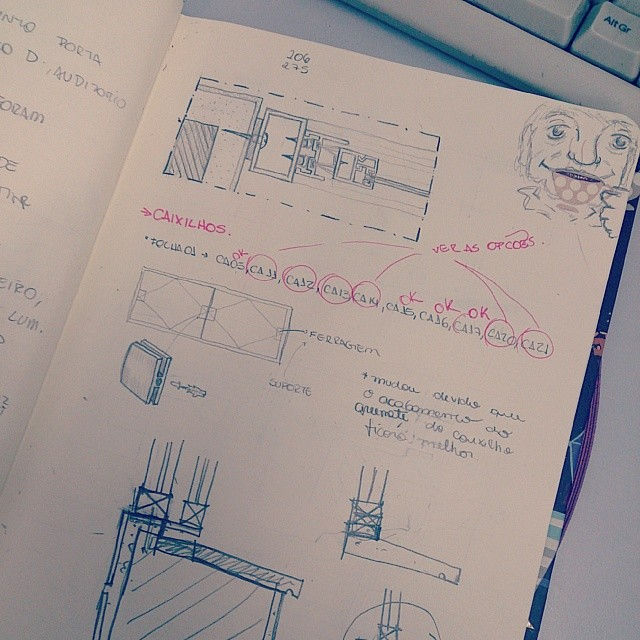 PORTA
D., AUDITORIO
FORAM
DE
LUM.
206
275
→ CAIXILHOS.
VER AS OPÇÕES.
• FOLHA 01 → CA05, CA11, CA12, CA13, CA14, CA15, CA16, CA17, CA20, CA21
OK OK OK OK
FERRAGEM
SUPORTE
* mudou devido que
o acabamento do
do caixilho
ficará melhor
Alt Gr